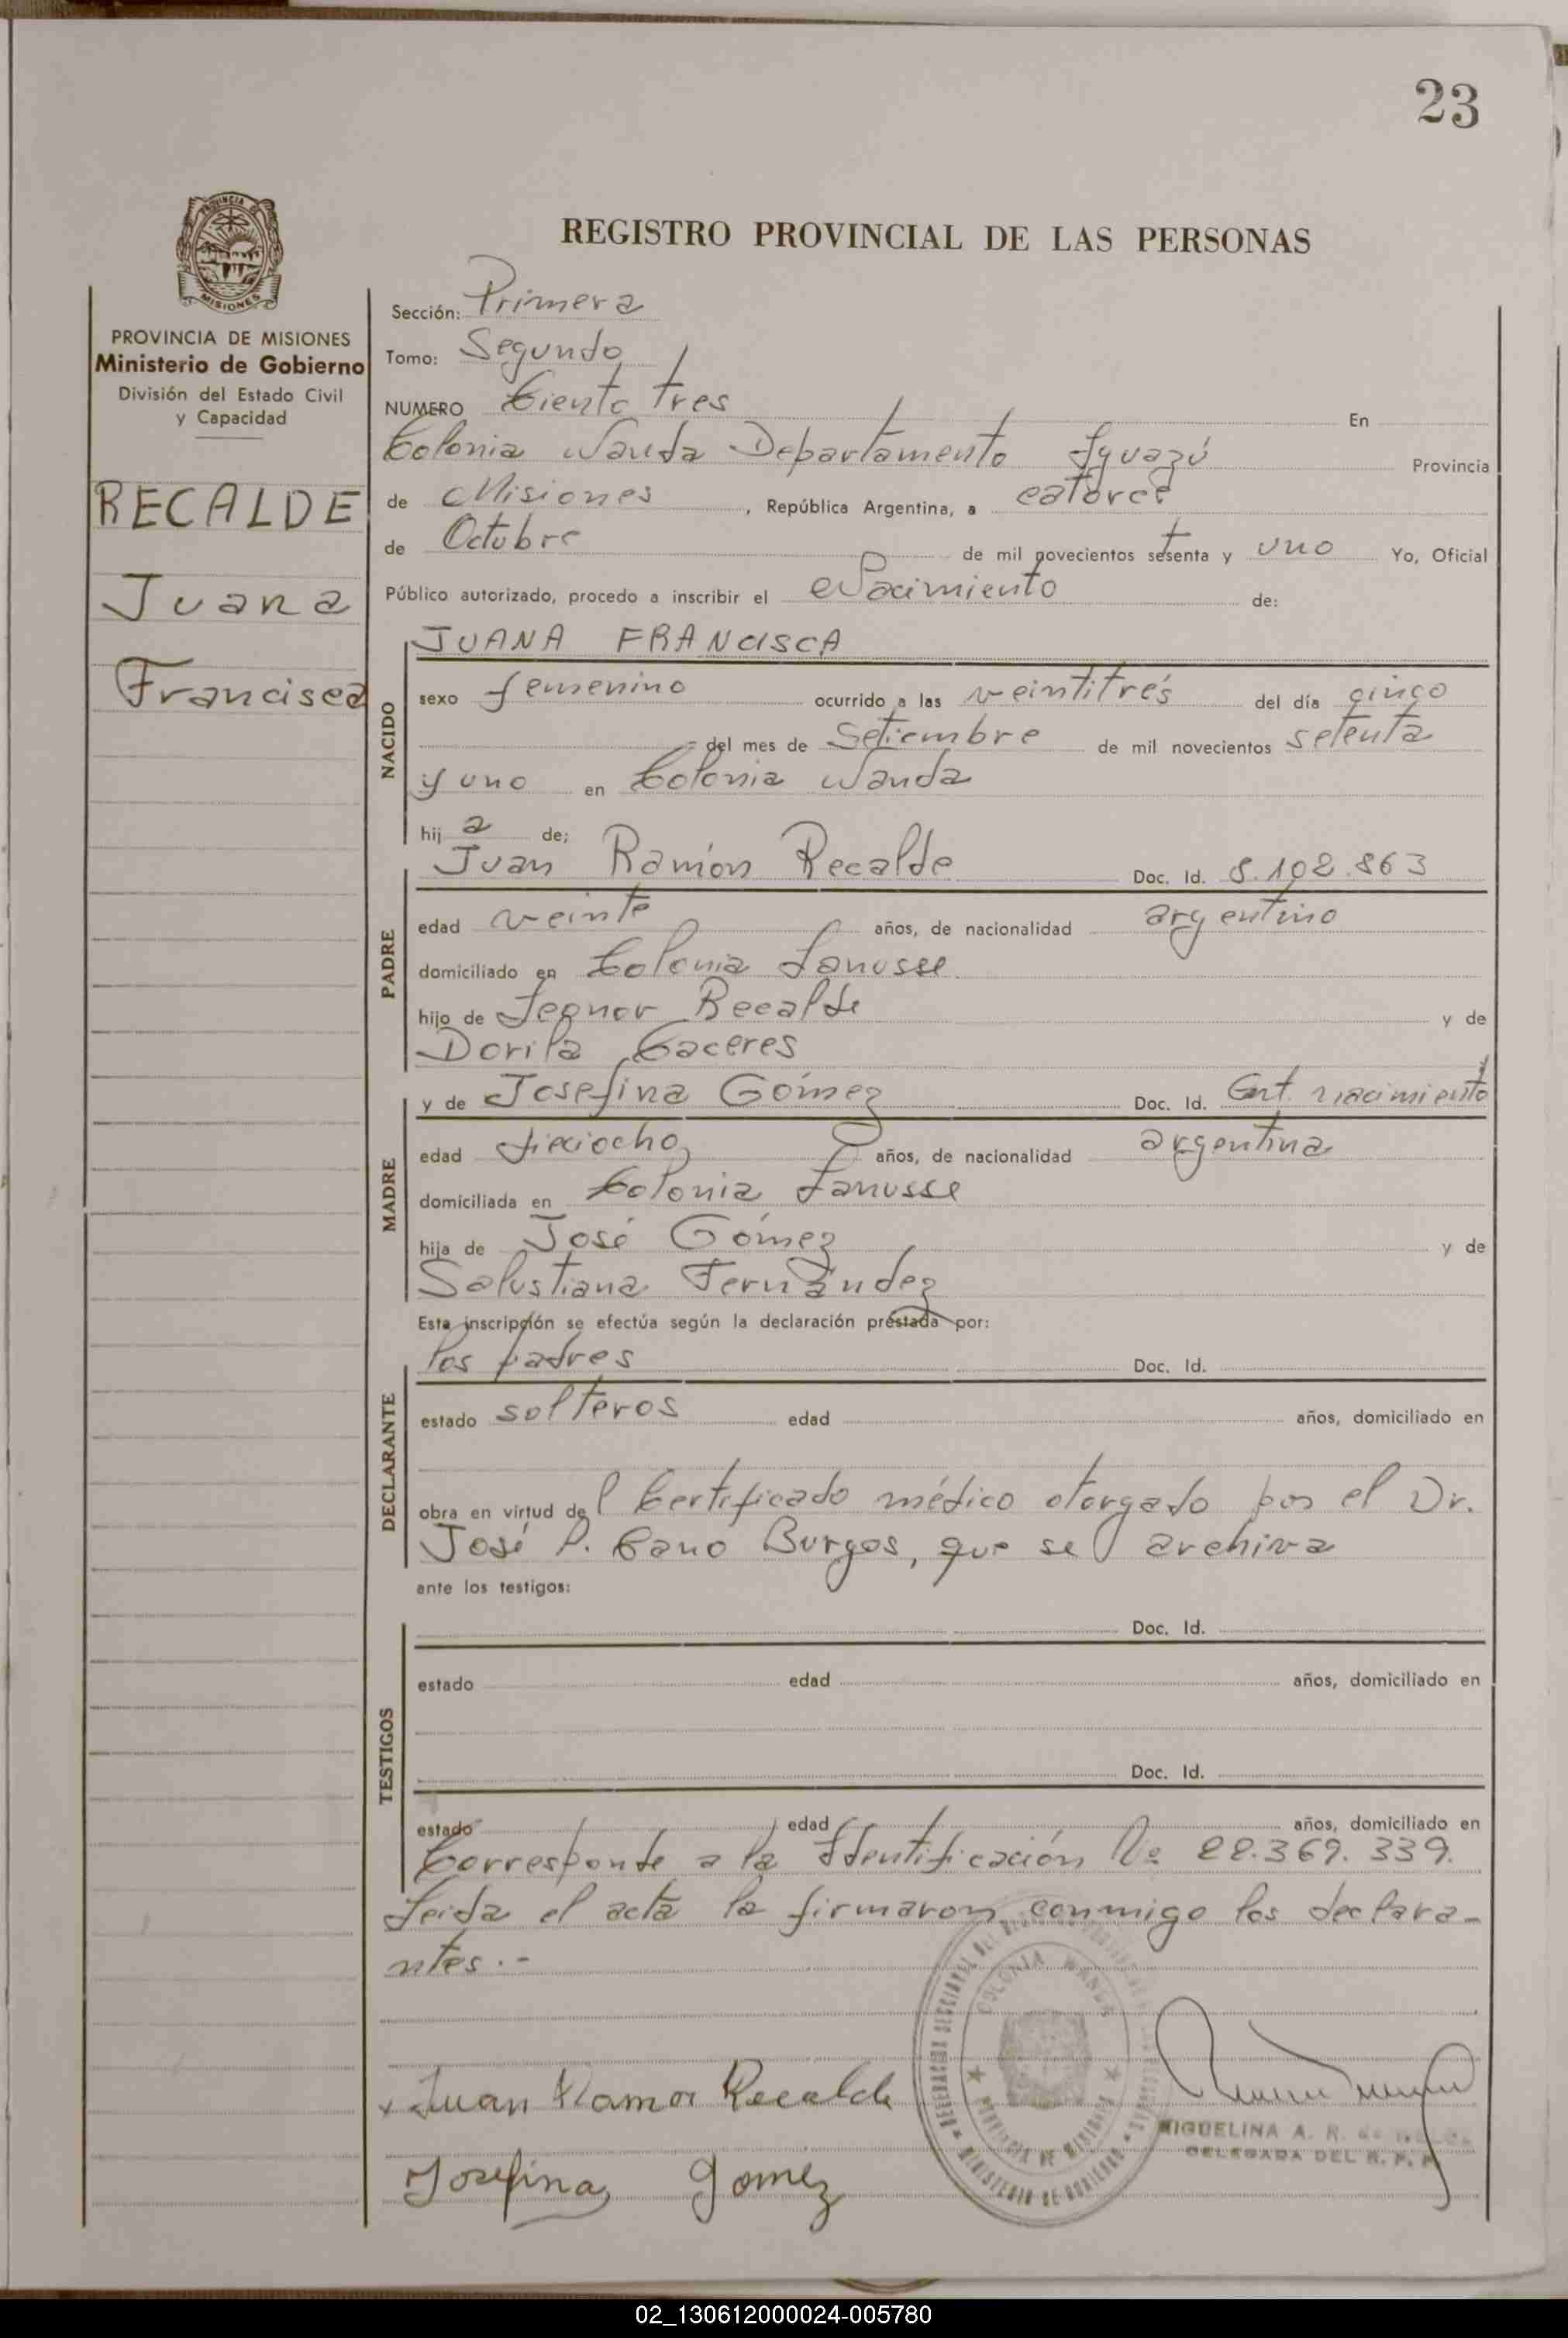 23
PROVINCIA DE
MISIONES
REGISTRO PROVINCIAL DE LAS PERSONAS
PROVINCIA DE MISIONES
Ministerio de Gobierno
División del Estado Civil
y Capacidad
RECALDE
Juana
Francisca
Sección: Primera
Tomo: Segundo
NUMERO Ciento tres En
Colonia Wanda Departamento Iguazú Provincia
de Misiones, República Argentina, a catorce
de Octubre de mil novecientos setenta y uno Yo, Oficial
Público autorizado, procedo a inscribir el Nacimiento de:
NACIDO
JUANA FRANCISCA
sexo femenino ocurrido a las veintitrés del día cinco
del mes de Setiembre de mil novecientos setenta
y uno en Colonia Wanda
hij a de;
PADRE
Juan Ramón Recalde Doc. Id. 8.102.863
edad veinte años, de nacionalidad argentino
domiciliado en Colonia Lanusse
hijo de Recalde y de
Dorila Caceres
MADRE
y de Josefina Gómez Doc. Id. Cert. nacimiento
edad dieciocho años, de nacionalidad argentina
domiciliada en Colonia Lanusse
hija de José Gómez y de
Salustiana Fernández
Esta inscripción se efectúa según la declaración prestada por:
DECLARANTE
los padres Doc. Id.
estado solteros edad años, domiciliado en
obra en virtud del Certificado médico otorgado por el Dr.
José P. Cano Burgos, que se archiva
ante los testigos:
TESTIGOS
Doc. Id.
estado edad años, domiciliado en
Doc. Id.
estado edad años, domiciliado en
Corresponde a la Identificación Nº 22.369.339.
Leida el acta la firmaron conmigo los declara-
ntes.-
COLONIA WANDA
PROVINCIA DE MISIONES
MINISTERIO DE GOBIERNO
Juan Ramon Recalde
MIGUELINA A. R. de
DELEGADA DEL R. P. P.
Josefina Gomez
02_130612000024-005780